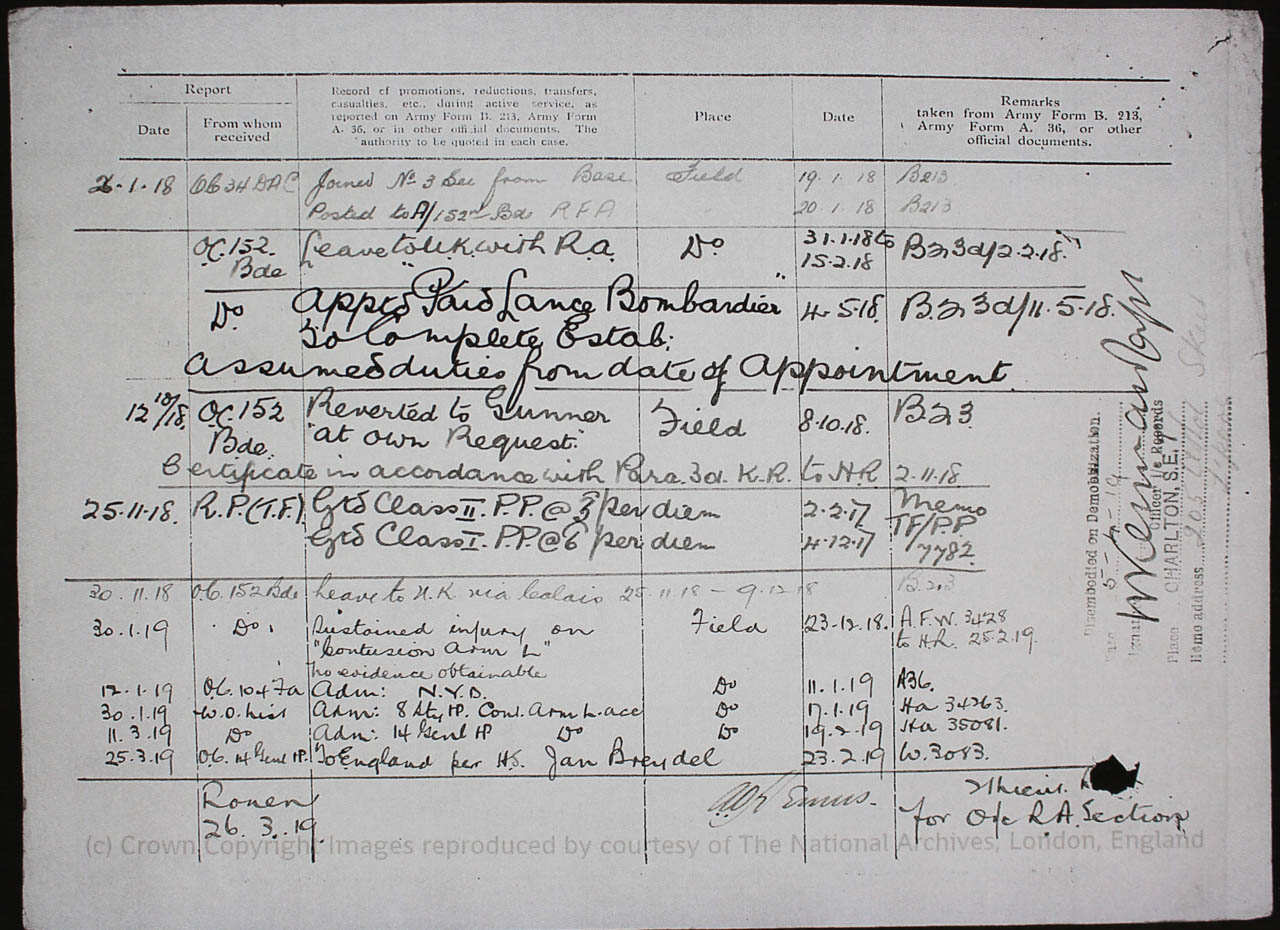 Report
Record of promotions, reductions, transfers,
casualties, etc., during active service, as
reported on Army Form B. 213, Army Form
A. 36, or in other official documents. The
authority to be quoted in each case.
Place
Date
Remarks
taken from Army Form B. 213,
Army Form A. 36, or other
official documents.
Date
From whom
received
26.1.18 OC 34 DAC Joined No 3 Sec from Base Field 19.1.18 B213
Posted to A/152nd Bde RFA 20.1.18 B213
OC. 152 Bde Leave to U.K. with R.a. Do 31.1.18 to 15.2.18 B213d/2.2.18.
Do Apptd Paid Lance Bombardier 4.5.18. B213d/11.5.18.
To Complete Estab:
Assumed duties from date of Appointment.
12/10/18. OC. 152 Bde. Reverted to Gunner Field 8.10.18. B213
"at own Request."
Certificate in accordance with Para. 3d. K.R. to H.R 2-11-18
25.11.18. R.P.(T.F.) Gtd Class II. P.P. @ 3d per diem 2.2.17 Memo
Gtd Class I. P.P. @ 6d per diem 4.12.17 TF/P.P. 7782.
30.11.18 OC. 152 Bde Leave to U.K. via Calais 25.11.18 - 9.12.18 B.213
30.1.19 Do. Sustained injury on Field 23-12.18. A.F.W. 3428
"Contusion Arm L" to H.R. 25.2.19.
No evidence obtainable
12.1.19 OC. 104 Fa Adm: N.Y.D. Do 11.1.19 A36.
30.1.19 W.O. List Adm: 8 Sty H. Cont. Arm L. acc Do 17.1.19 Ha 34263.
11.3.19 Do Adm: 14 Genl H Do Do 19.2.19 Ha 35081.
25.3.19 OC. 14 Genl H. To England per H.S. Jan Breydel 23.2.19 W.3083.
Rouen
26.3.19
for O/c R.A. Section
Disembodied on Demobilization.
Officer i/c Records
Place CHARLTON, S.E.7
Home address
(c) Crown Copyright Images reproduced by courtesy of The National Archives, London, England